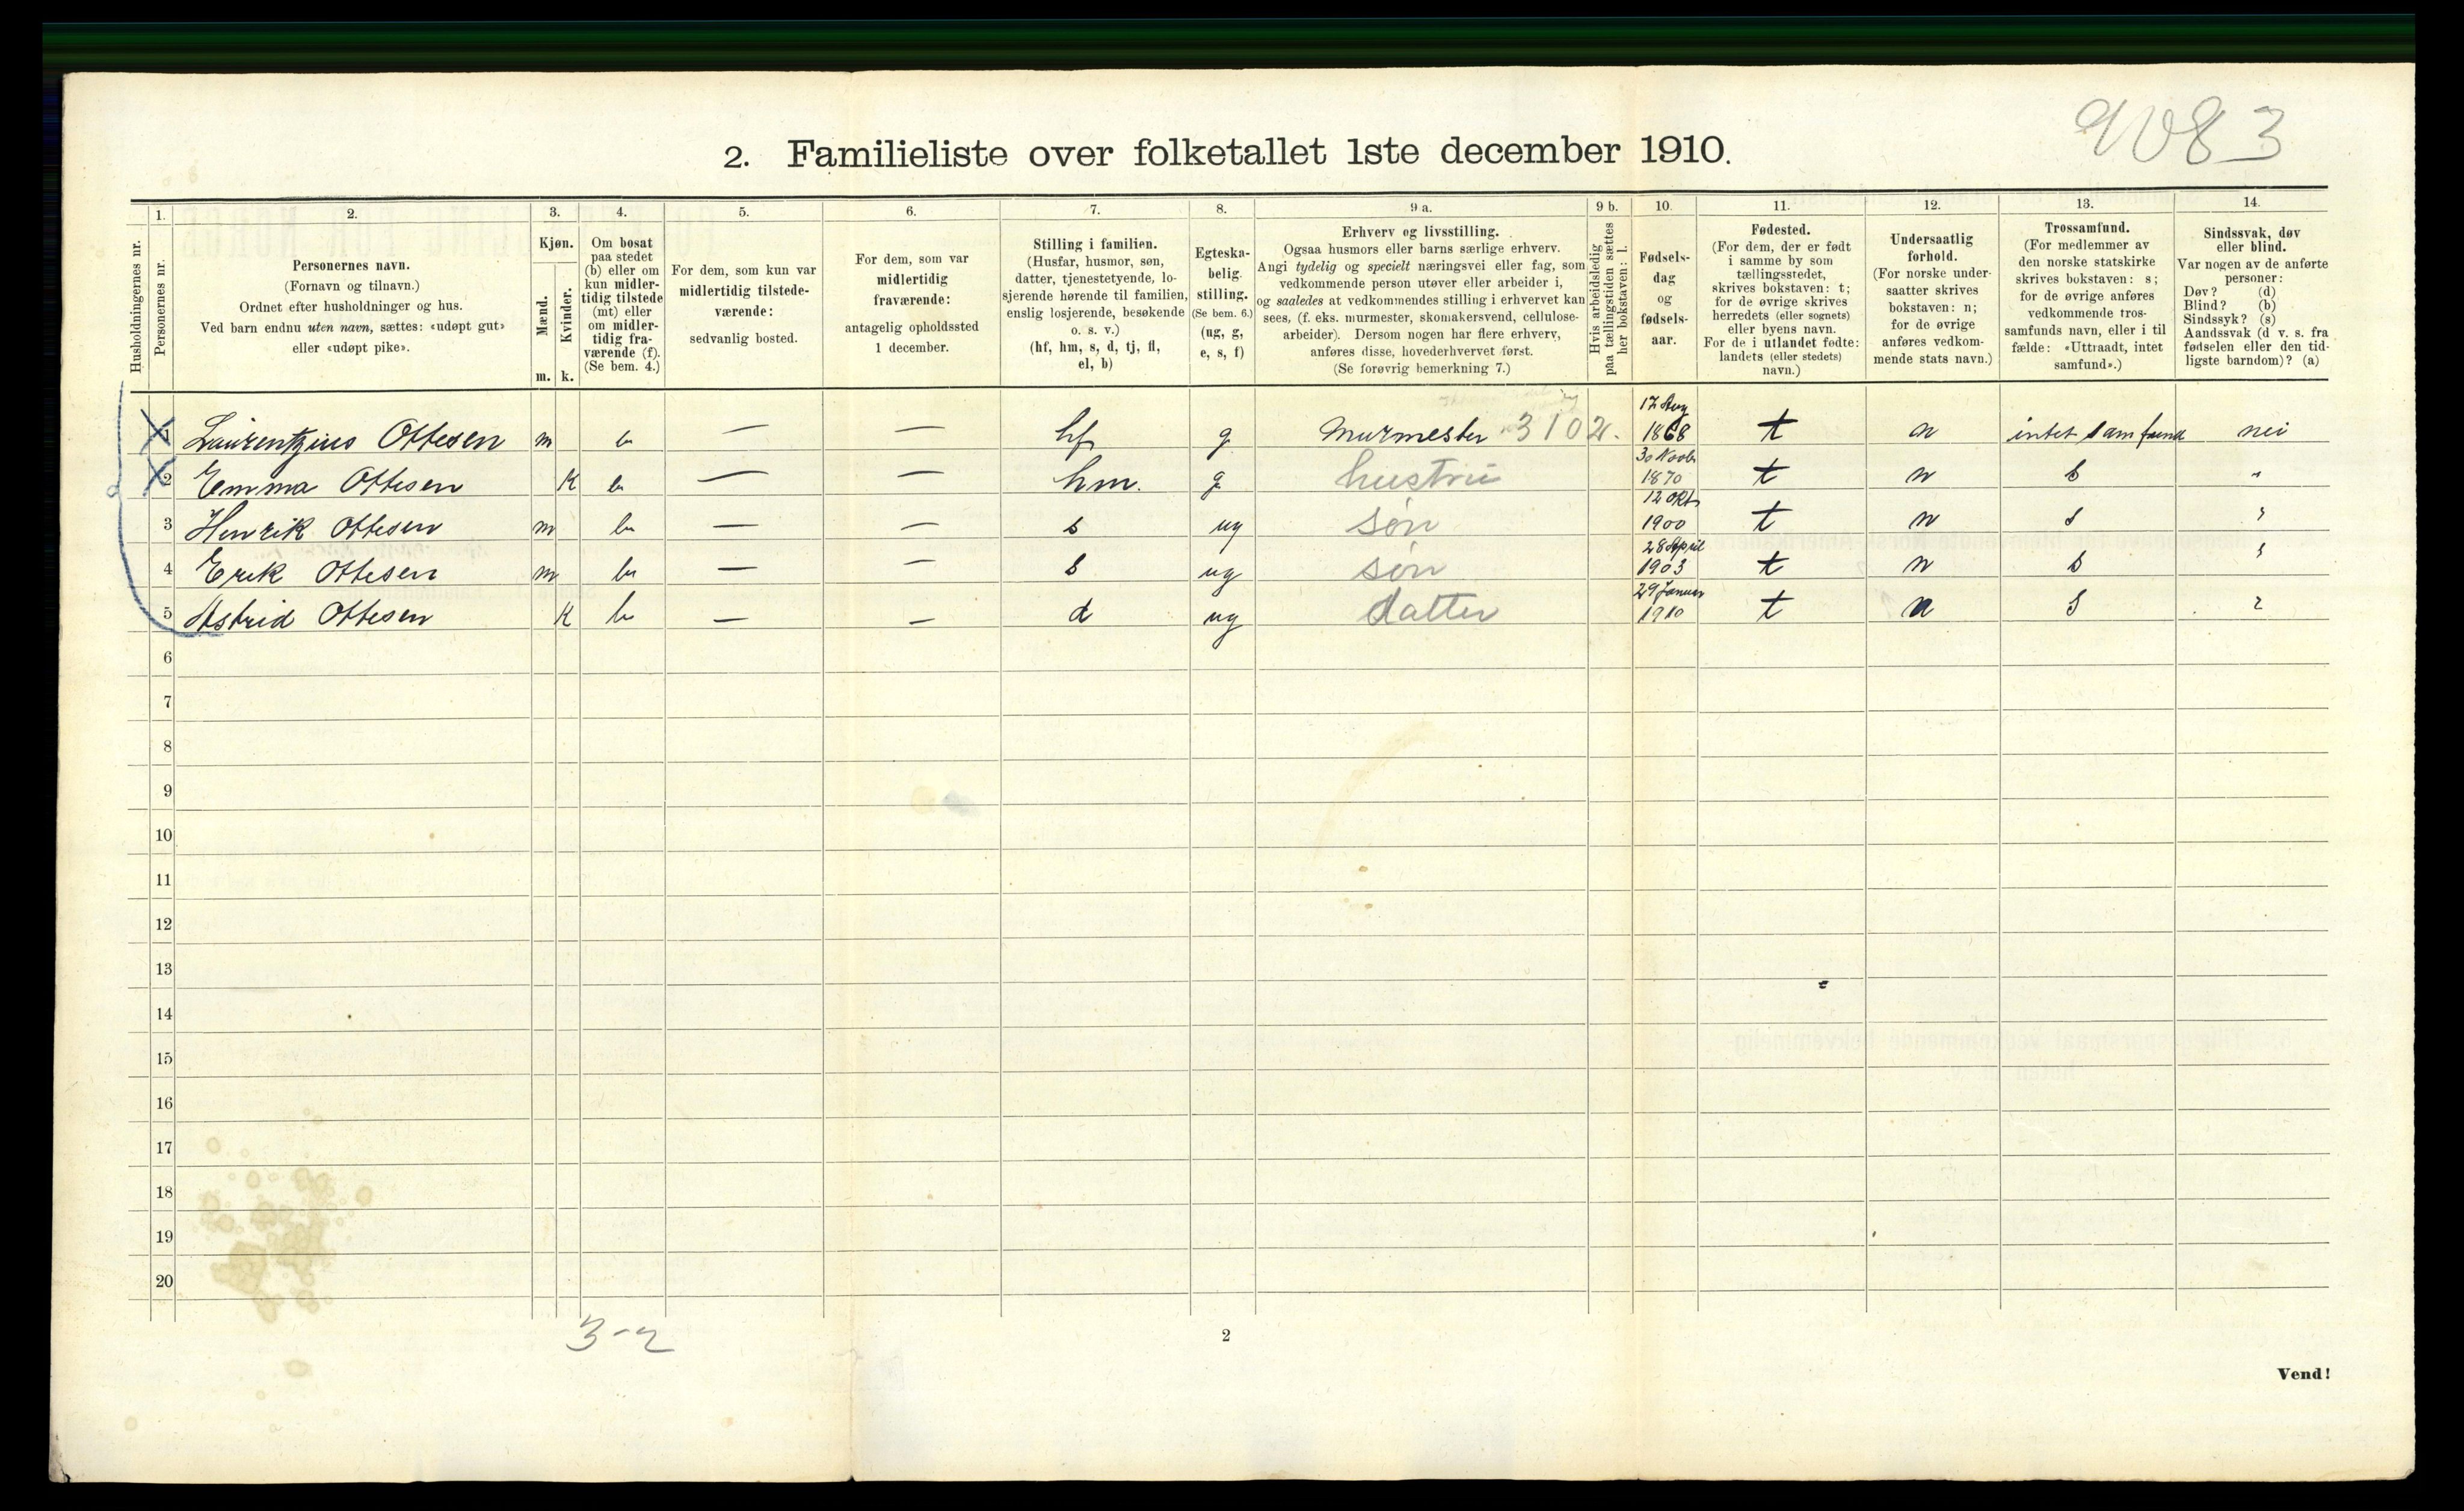 9083
2. Familieliste over folketallet 1ste december 1910.
1. 2. 3. 4. 5. 6. 7. 8. 9 a. 9 b. 10. 11. 12. 13. 14.
Husholdningernes nr.
Personernes nr.
Personernes navn.
(Fornavn og tilnavn.)
Ordnet efter husholdninger og hus.
Ved barn endnu uten navn, sættes: «udøpt gut»
eller «udøpt pike».
Kjøn.
Mænd.
Kvinder.
m. k.
Om bosat
paa stedet
(b) eller om
kun midler-
tidig tilstede
(mt) eller
om midler-
tidig fra-
værende (f).
(Se bem. 4.)
For dem, som kun var
midlertidig tilstede-
værende:
sedvanlig bosted.
For dem, som var
midlertidig
fraværende:
antagelig opholdssted
1 december.
Stilling i familien.
(Husfar, husmor, søn,
datter, tjenestetyende, lo-
sjerende hørende til familien,
enslig losjerende, besøkende
o. s. v.)
(hf, hm, s, d, tj, fl,
el, b)
Egteska-
belig
stilling.
(Se bem. 6.)
(ug, g,
e, s, f)
Erhverv og livsstilling.
Ogsaa husmors eller barns særlige erhverv.
Angi tydelig og specielt næringsvei eller fag, som
vedkommende person utøver eller arbeider i,
og saaledes at vedkommendes stilling i erhvervet kan
sees, (f. eks. murmester, skomakersvend, cellulose-
arbeider). Dersom nogen har flere erhverv,
anføres disse, hovederhvervet først.
(Se forøvrig bemerkning 7.)
Hvis arbeidsledig
paa tællingstiden sættes
her bokstaven: l.
Fødsels-
dag
og
fødsels-
aar.
Fødested.
(For dem, der er født
i samme by som
tællingsstedet,
skrives bokstaven: t;
for de øvrige skrives
herredets (eller sognets)
eller byens navn.
For de i utlandet fødte:
landets (eller stedets)
navn.)
Undersaatlig
forhold.
(For norske under-
saatter skrives
bokstaven: n;
for de øvrige
anføres vedkom-
mende stats navn.)
Trossamfund.
(For medlemmer av
den norske statskirke
skrives bokstaven: s;
for de øvrige anføres
vedkommende tros-
samfunds navn, eller i til-
fælde: «Uttraadt, intet
samfund».)
Sindssvak, døv
eller blind.
Var nogen av de anførte
personer:
Døv? (d)
Blind? (b)
Sindssyk? (s)
Aandssvak (d v. s. fra
fødselen eller den tid-
ligste barndom)? (a)
1 Laurentzius Ottesen m b — — hf g Murmester 3102. 17 Aug 1868 t n intet samfund nei
2 Emma Ottesen K b — — hm. g hustru 30 Novbr 1870 t n s "
3 Henrik Ottesen m b — — s ug søn 12 Okt 1900 t n s "
4 Erik Ottesen m b — — s ug søn 28 April 1903 t n s "
5 Astrid Ottesen K b — — d ug datter 29 Januar 1910 t n s "
6
7
8
9
10
11
12
13
14
15
16
17
18
19
20
3-2
2
Vend!